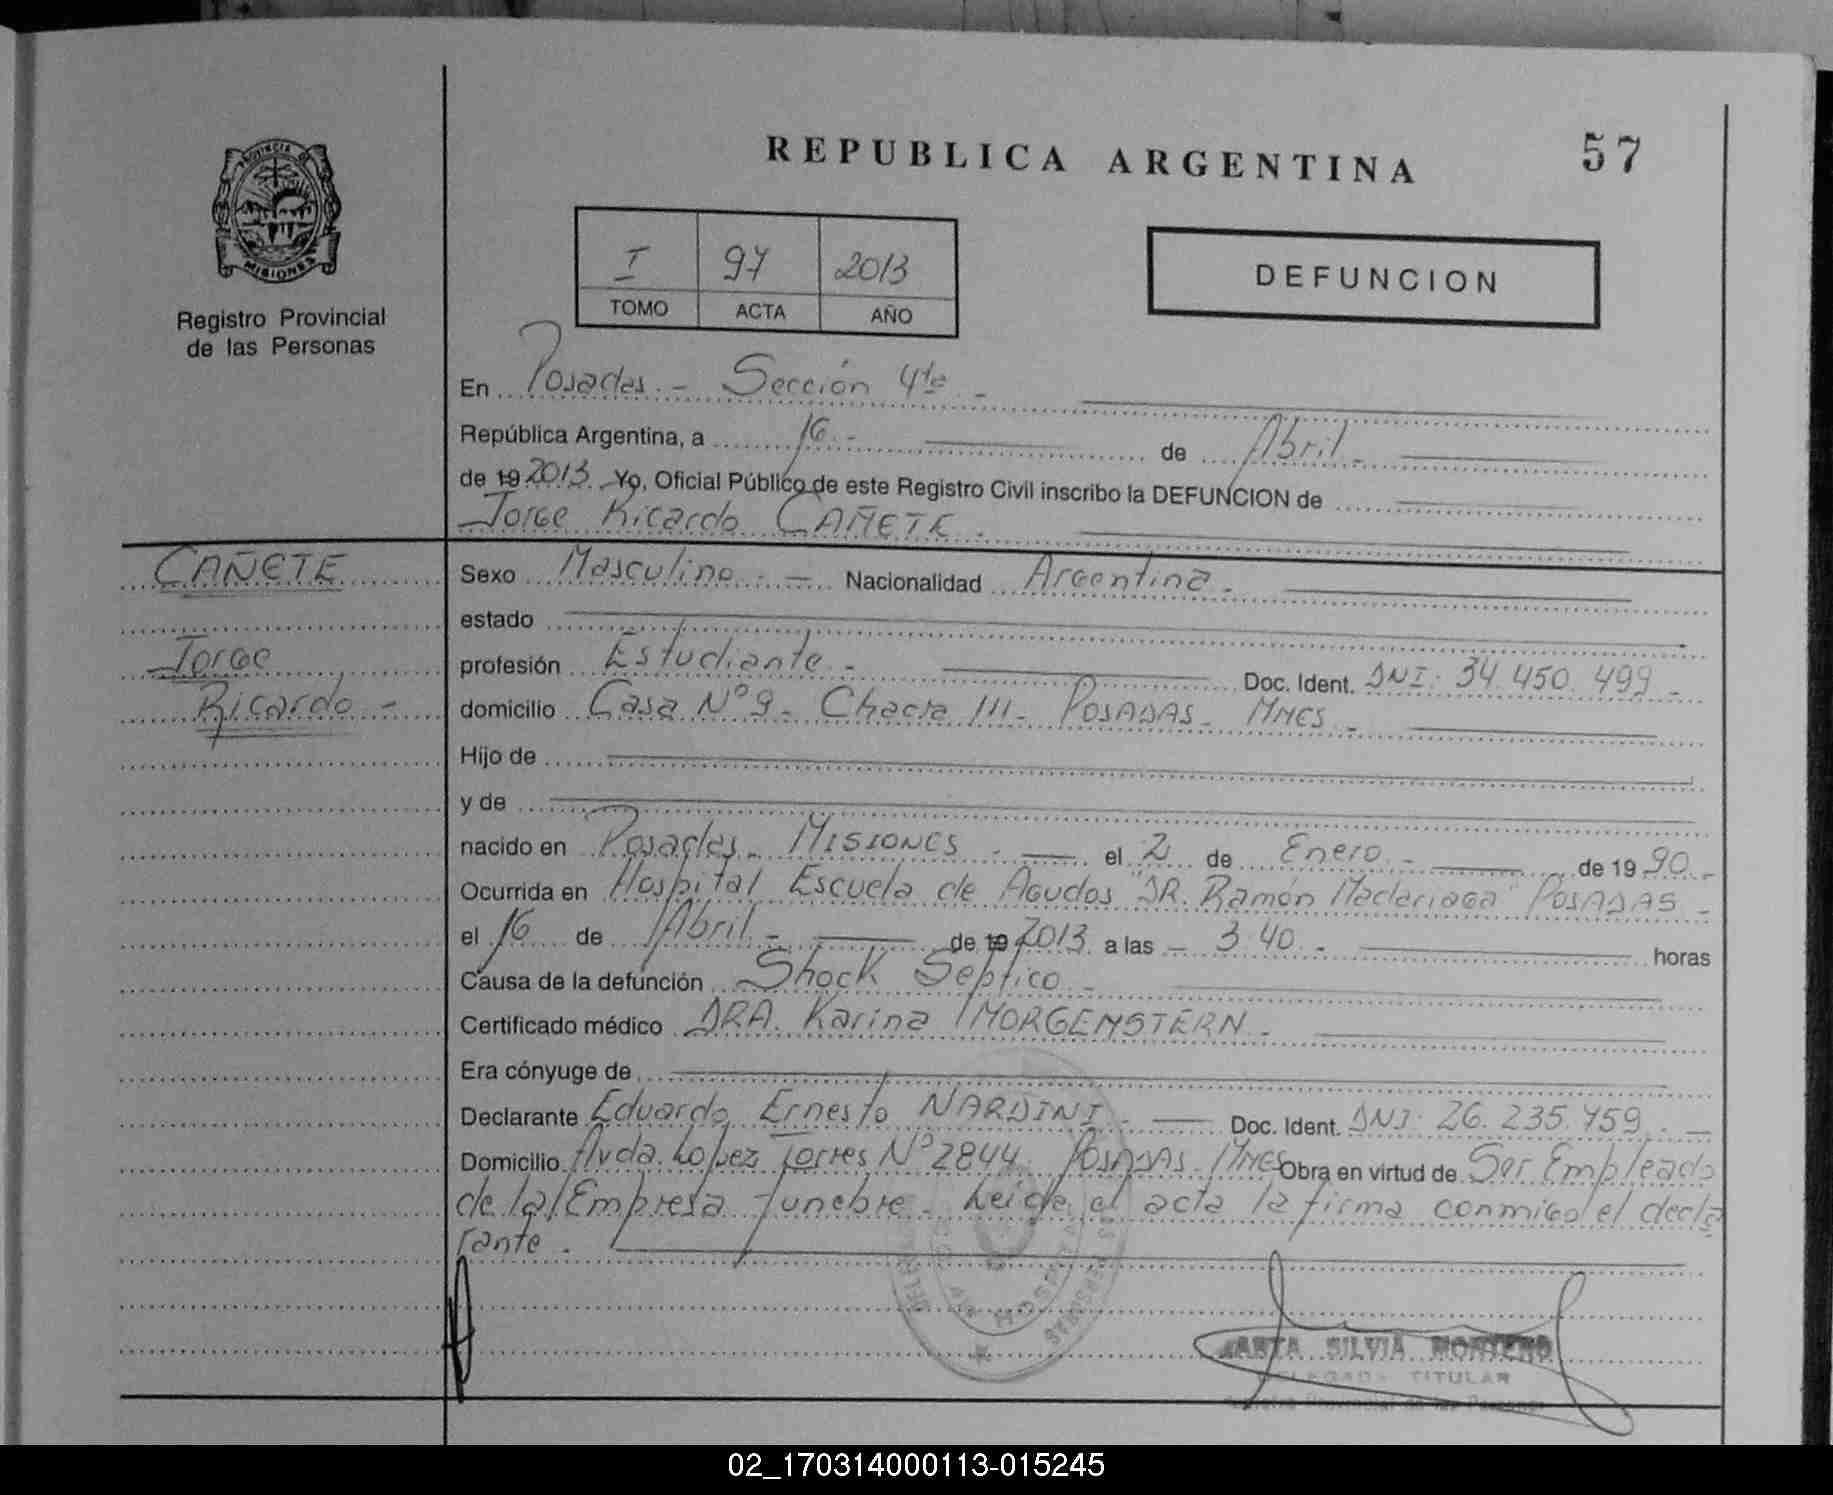 REPUBLICA ARGENTINA
57
PROVINCIA DE
MISIONES
Registro Provincial
de las Personas
I 97 2013
TOMO ACTA AÑO
DEFUNCION
En Posadas. - Sección 4ta -
República Argentina, a 16 - de Abril -
de 19 2013. Yo, Oficial Público de este Registro Civil inscribo la DEFUNCION de
Jorge Ricardo CAÑETE.
CAÑETE
Jorge
Ricardo -
Sexo Masculino. - Nacionalidad Argentina -
estado
profesión Estudiante - Doc. Ident. DNI: 34.450.499 -
domicilio Casa Nº 9 - Chacra 111 - POSADAS - MNES -
Hijo de
y de
nacido en Posadas - MISIONES - el 2 de Enero - de 19 90. -
Ocurrida en Hospital Escuela de Agudos "DR. Ramón Madariaga" POSADAS -
el 16 de Abril - de 19 2013 a las - 3:40. - horas
Causa de la defunción Shock Séptico -
Certificado médico DRA. Karina MORGEMSTERN -
Era cónyuge de
Declarante Eduardo Ernesto NARDINI - Doc. Ident. DNI: 26.235.759. -
Domicilio Avda. Lopez Torres Nº 2844. POSADAS - MNES Obra en virtud de Ser Empleado
de la Empresa funebre - Leida el acta la firma conmigo el decla
rante -
SILVIA MONTERO
TITULAR
02_170314000113-015245